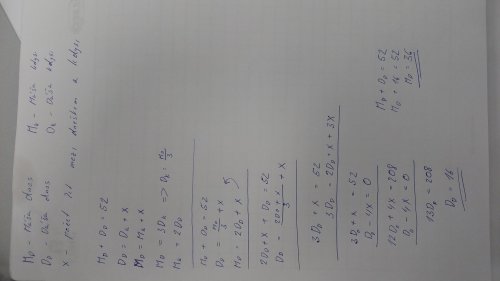 M_D - dnes M_K - kdysi
D_D - Dáša dnes D_K - Dáša kdysi
x - počet let mezi dneškem a kdysi
M_D + D_D = 52
D_D = D_K + x
M_D = M_K + x
M_D = 3D_K => D_K = M_D/3
M_K = 2D_D
M_D + D_D = 52
D_D = M_D/3 + x
M_D = 2D_D + x
2D_D + x + D_D = 52
D_D = (2D_D + x)/3 + x
3D_D + x = 52
3D_D = 2D_D + x + 3x
3D_D + x = 52
D_D - 4x = 0
12D_D + 4x = 208
D_D - 4x = 0
13D_D = 208
D_D = 16
M_D + D_D = 52
M_D + 16 = 52
M_D = 36